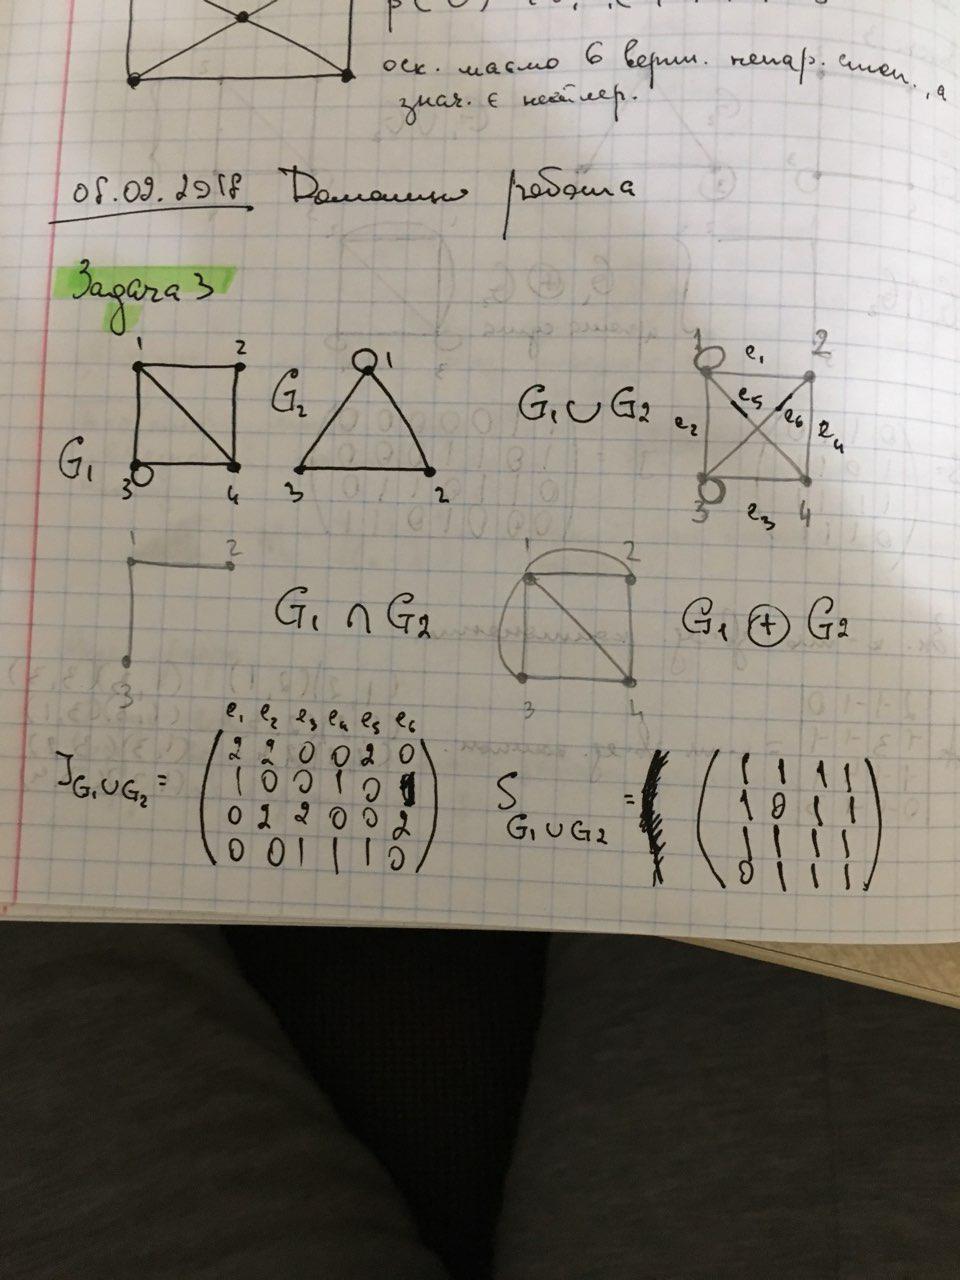 оск. маємо 6 верш. непар. степ., а
знач. є неейлер.
08.09.2018 Домашня робота
Задача 3
1 2
G₁
3 4
G₂
1
3 2
G₁ ∪ G₂
1 e₁ 2
e₂ e₅ e₆ e₄
3 e₃ 4
1 2
3
G₁ ∩ G₂
1 2
3 4
G₁ ⊕ G₂
e₁ e₂ e₃ e₄ e₅ e₆
J G₁∪G₂ =
2 2 0 0 2 0
1 0 0 1 0 1
0 2 2 0 0 2
0 0 1 1 1 0
S G₁∪G₂ =
1 1 1 1
1 0 1 1
1 1 1 1
0 1 1 1